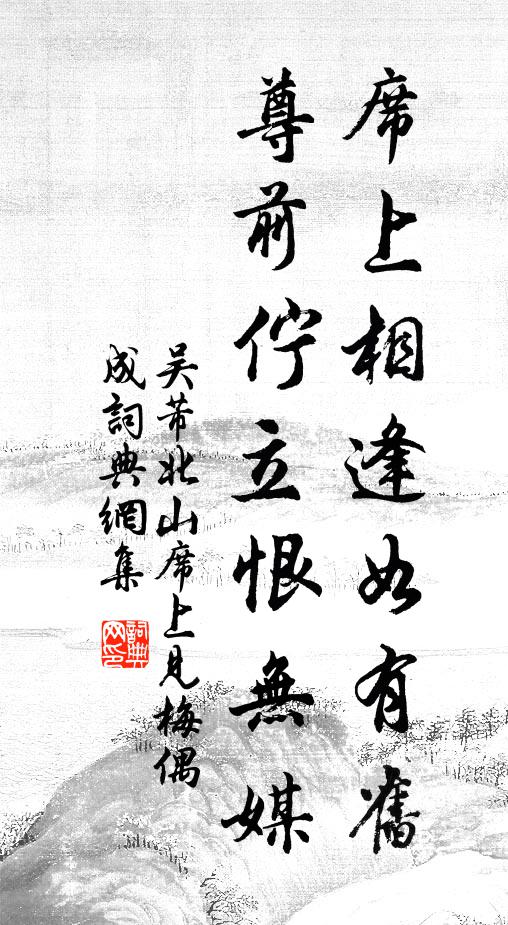 席上相逢如有舊
尊前佇立恨無媒
吴芾北山席上見梅偶
成詞典網集
詞典
网印